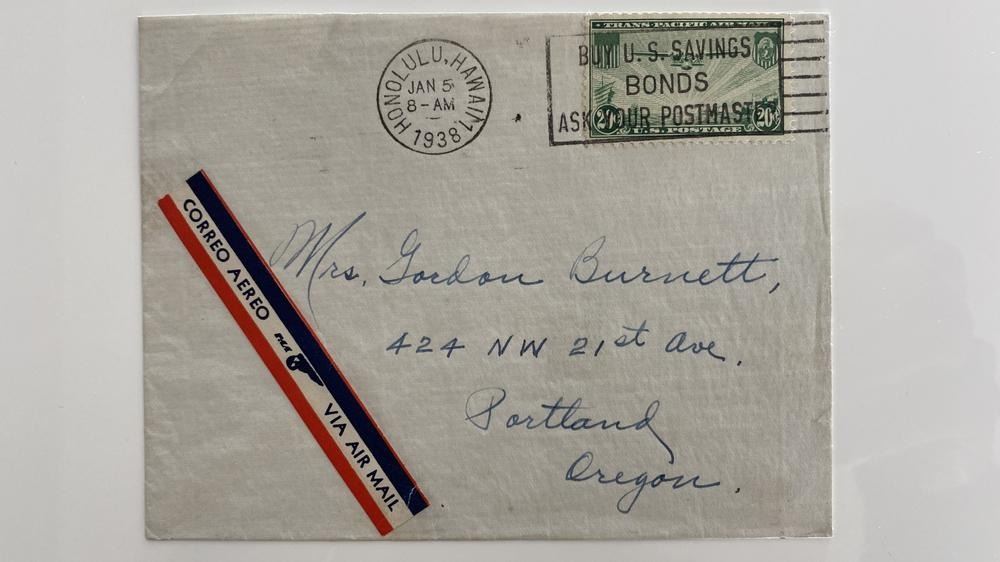 HONOLULU, HAWAII
JAN 5
8-AM
1938
TRANS-PACIFIC AIR MAIL
BUY U.S. SAVINGS
BONDS
ASK YOUR POSTMASTER
20¢ 20¢
U.S. POSTAGE
CORREO AEREO PAA VIA AIR MAIL
Mrs. Gordon Burnett,
424 NW 21st Ave.
Portland
Oregon.